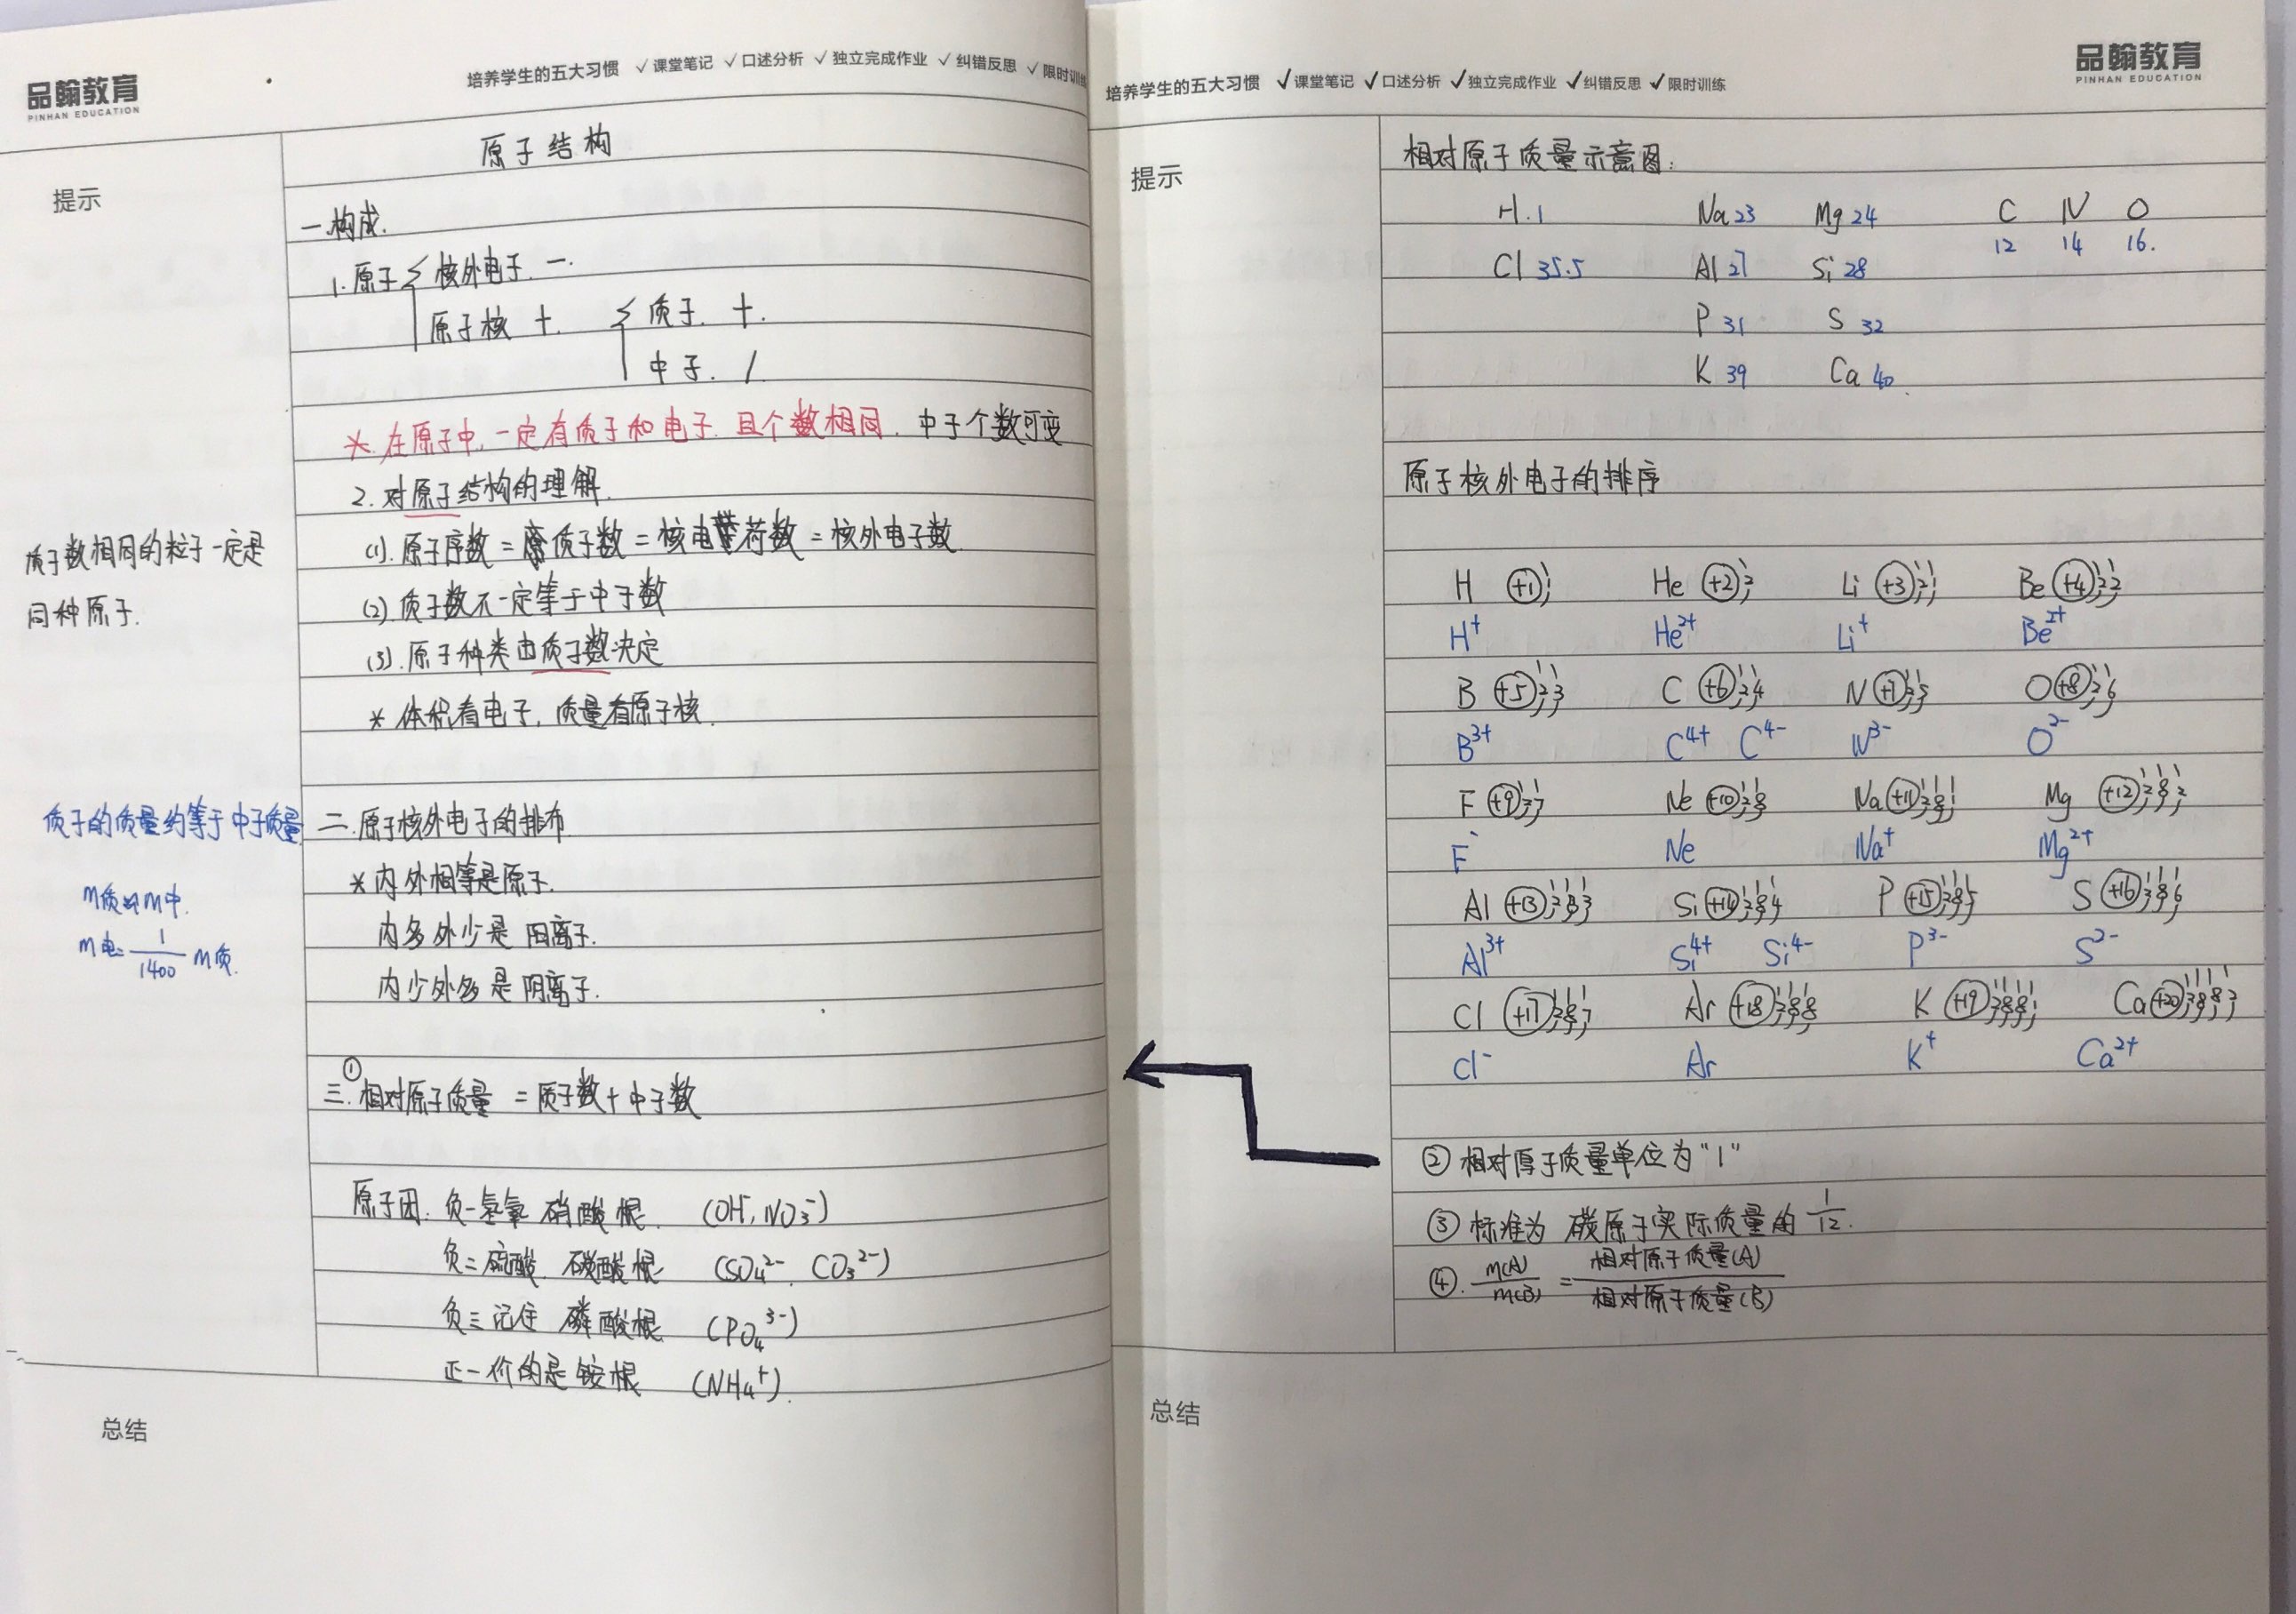 品翰教育
PINHAN EDUCATION
培养学生的五大习惯 ✓课堂笔记 ✓口述分析 ✓独立完成作业 ✓纠错反思 ✓限时训练
提示
原子结构
一.构成.
1.原子 核外电子. 一.
原子核 +. 质子. +.
中子. /.
* 在原子中,一定有质子和电子.且个数相同. 中子个数可变
2.对原子结构的理解.
(1).原子序数=质子数=核电荷数=核外电子数.
(2).质子数不一定等于中子数
(3).原子种类由质子数决定
* 体积看电子,质量看原子核.
质子数相同的粒子一定是
同种原子.
质子的质量约等于中子质量
m质≈m中.
m电=1/1400 m质.
二.原子核外电子的排布
*内外相等是原子.
内多外少是 阳离子.
内少外多是 阴离子.
①
三.相对原子质量 =质子数+中子数
原子团. 负一氢氧 硝酸根. (OH⁻, NO₃⁻)
负二硫酸. 碳酸根 (SO₄²⁻. CO₃²⁻)
负三记住 磷酸根 (PO₄³⁻)
正一价的是铵根 (NH₄⁺).
总结
品翰教育
PINHAN EDUCATION
培养学生的五大习惯 ✓课堂笔记 ✓口述分析 ✓独立完成作业 ✓纠错反思 ✓限时训练
提示
相对原子质量示意图:
H.1 Na 23 Mg 24 C N O
12 14 16.
Cl 35.5 Al 27 Si 28
P 31 S 32
K 39 Ca 40.
原子核外电子的排序
H +1 1 He +2 2 Li +3 2 1 Be +4 2 2
H⁺ He²⁺ Li⁺ Be²⁺
B +5 2 3 C +6 2 4 N +7 2 5 O +8 2 6
B³⁺ C⁴⁺ C⁴⁻ N³⁻ O²⁻
F +9 2 7 Ne +10 2 8 Na +11 2 8 1 Mg +12 2 8 2
F⁻ Ne Na⁺ Mg²⁺
Al +13 2 8 3 Si +14 2 8 4 P +15 2 8 5 S +16 2 8 6
Al³⁺ Si⁴⁺ Si⁴⁻ P³⁻ S²⁻
Cl +17 2 8 7 Ar +18 2 8 8 K +19 2 8 8 1 Ca +20 2 8 8 2
Cl⁻ Ar K⁺ Ca²⁺
②相对原子质量单位为"1"
③标准为 碳原子实际质量的1/12.
④. m(A)/m(B) = 相对原子质量(A)/相对原子质量(B)
总结